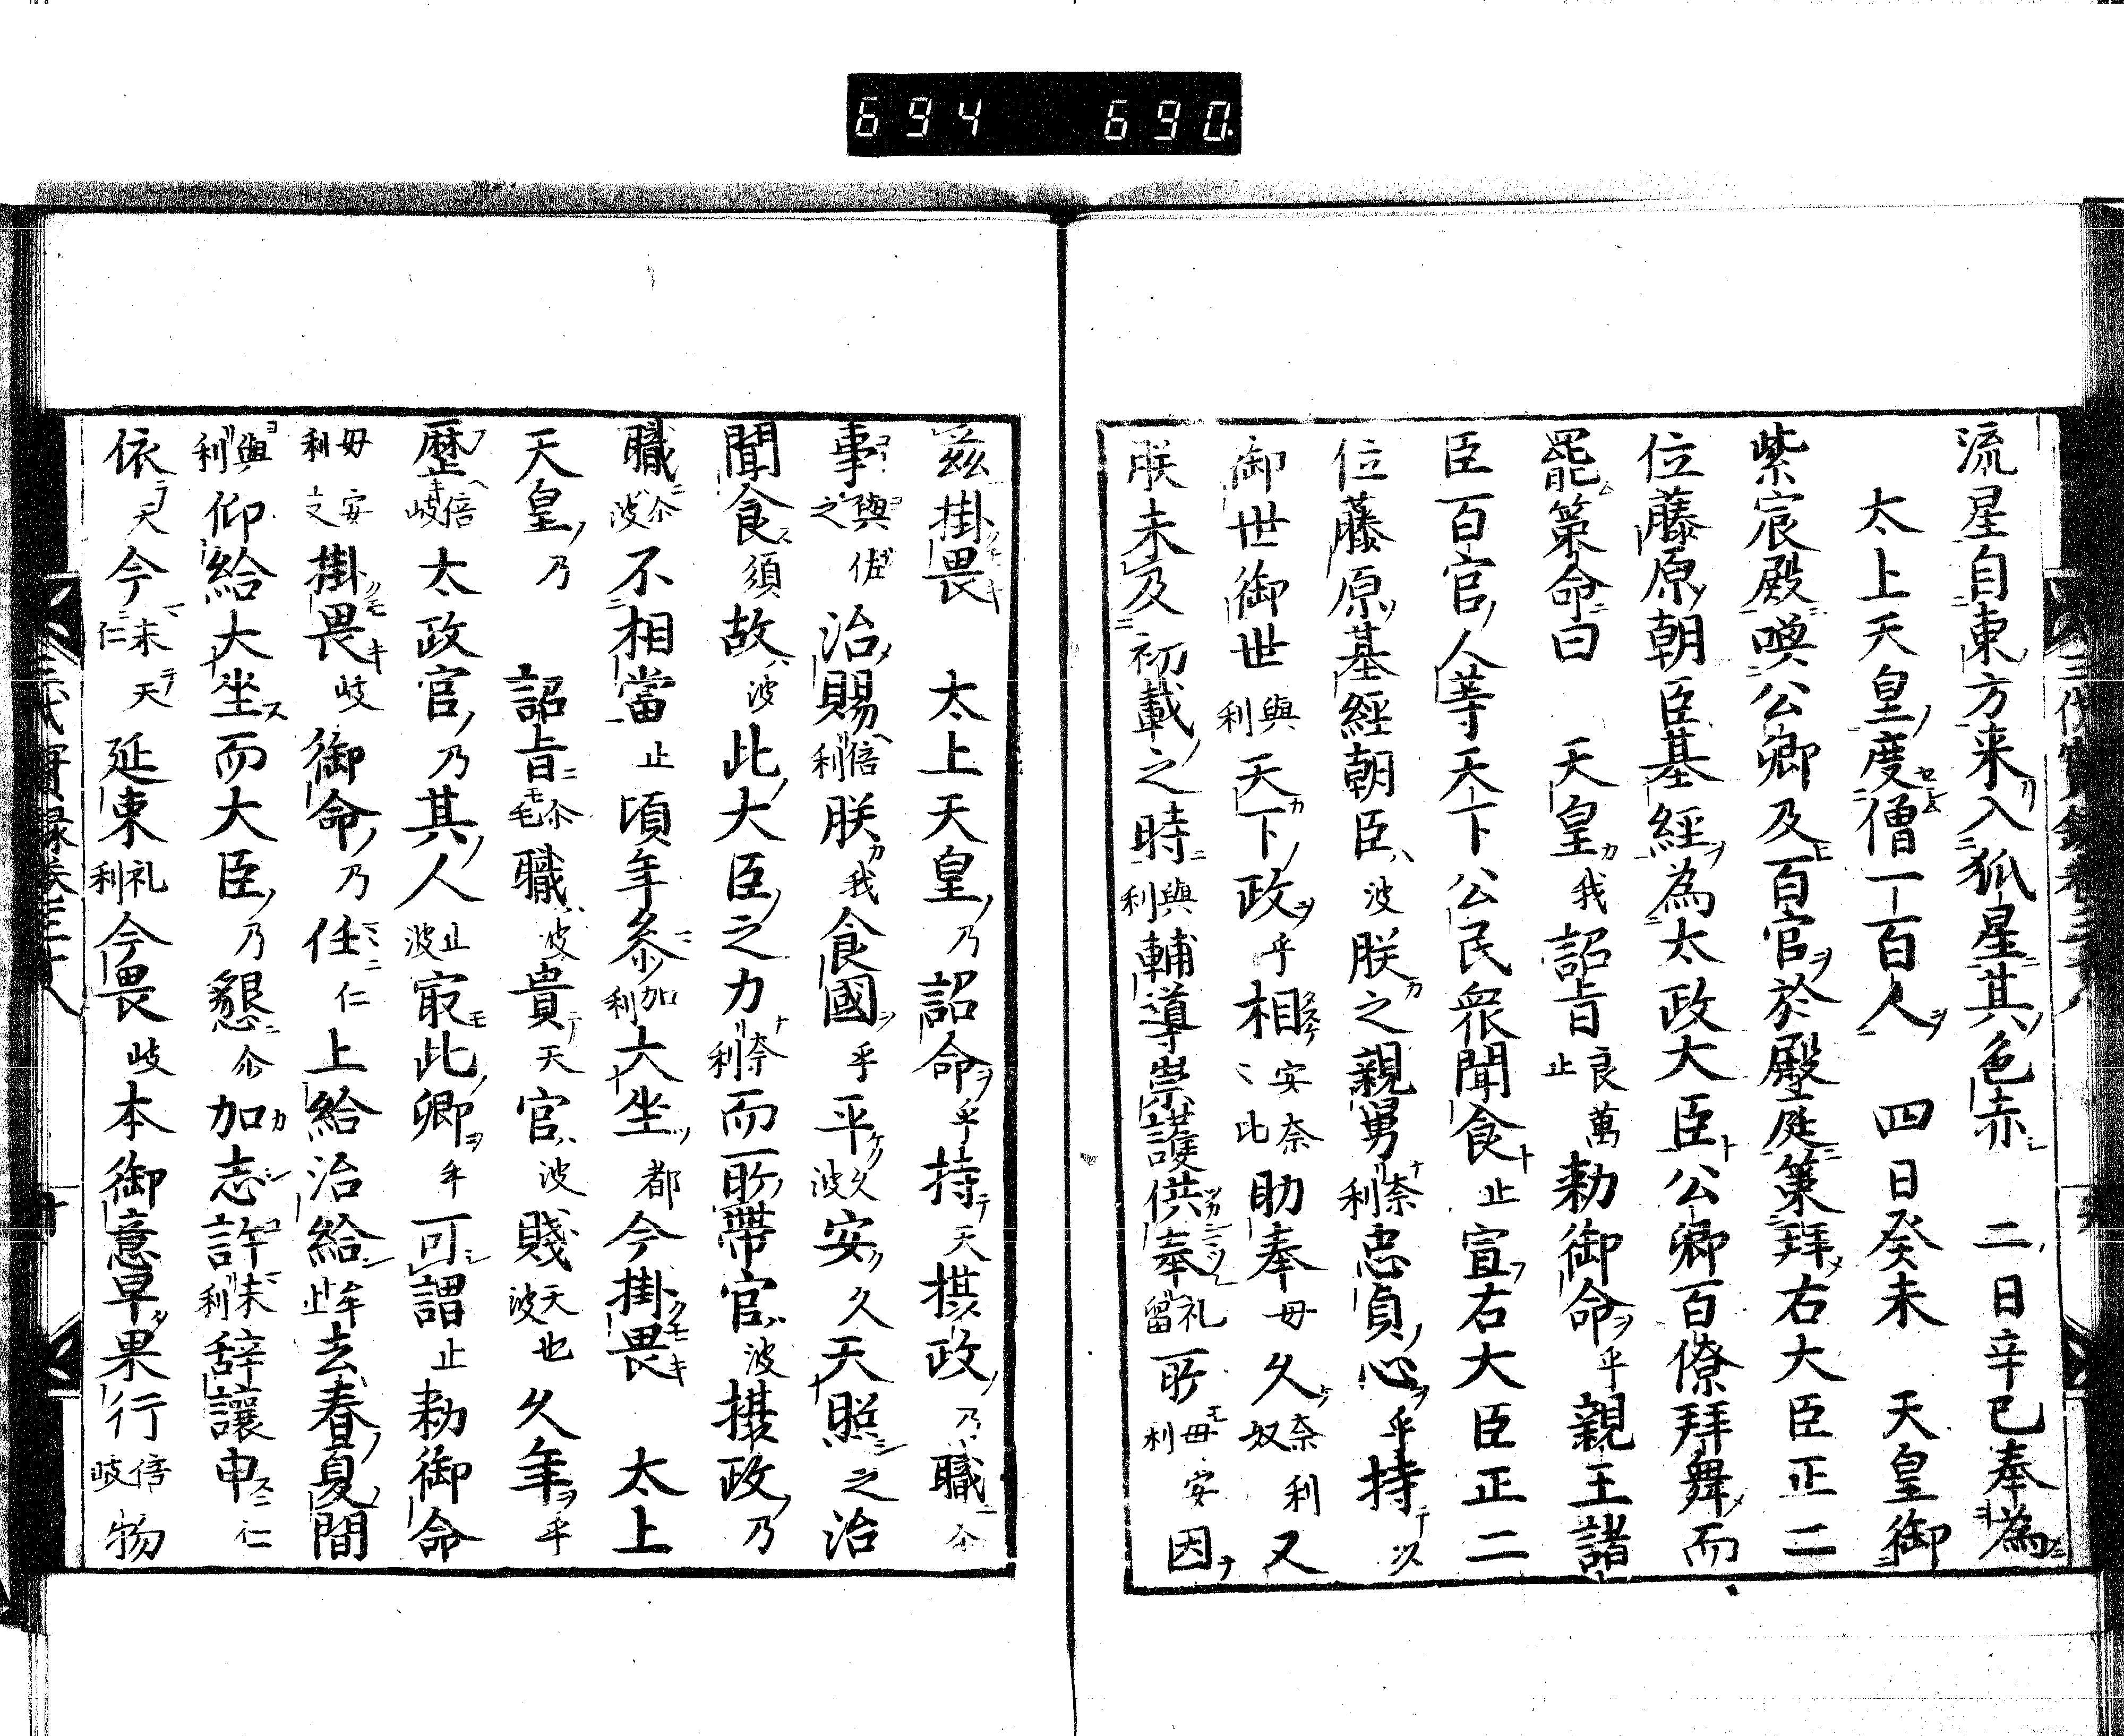 694 690
流星自東方来入狐星其色赤 二日辛巳奉為
太上天皇度僧一百人 四日癸未 天皇御
紫宸殿喚公卿及百官於殿庭策拜右大臣正二
位藤原朝臣基經為太政大臣公卿百僚拜舞而
罷策命曰 天皇我詔旨良萬止勅御命乎親王諸
臣百官人等天下公民衆聞食止宣右大臣正二
位藤原基經朝臣波朕之親舅奈利忠貞心乎持以
御世御世與利天下政乎相安奈々比助奉毋久奈利奴又
朕未及初載之時與利輔導崇護供奉礼留所毋利安因
茲掛畏 太上天皇乃詔命乎持天摂政乃職尒
事與佐之治賜倍利朕我食國乎平久波安久天照之治
聞食須故波此大臣之力奈利而所帶官波摂政乃
職尒波不相當止頃年叅加利大坐都今掛畏 太上
天皇乃 詔旨尒毛職波貴天官波賤天波也久年乎
歴倍岐太政官乃其人止波㝡此卿乎可謂止勅御命
毋利安文掛畏岐御命乃任仁上給治給牟止去春夏間
與利仰給大坐而大臣乃懇尒加志許未利辭讓申仁
依天今末仁天延束礼利今畏岐本御意早果行倍岐物